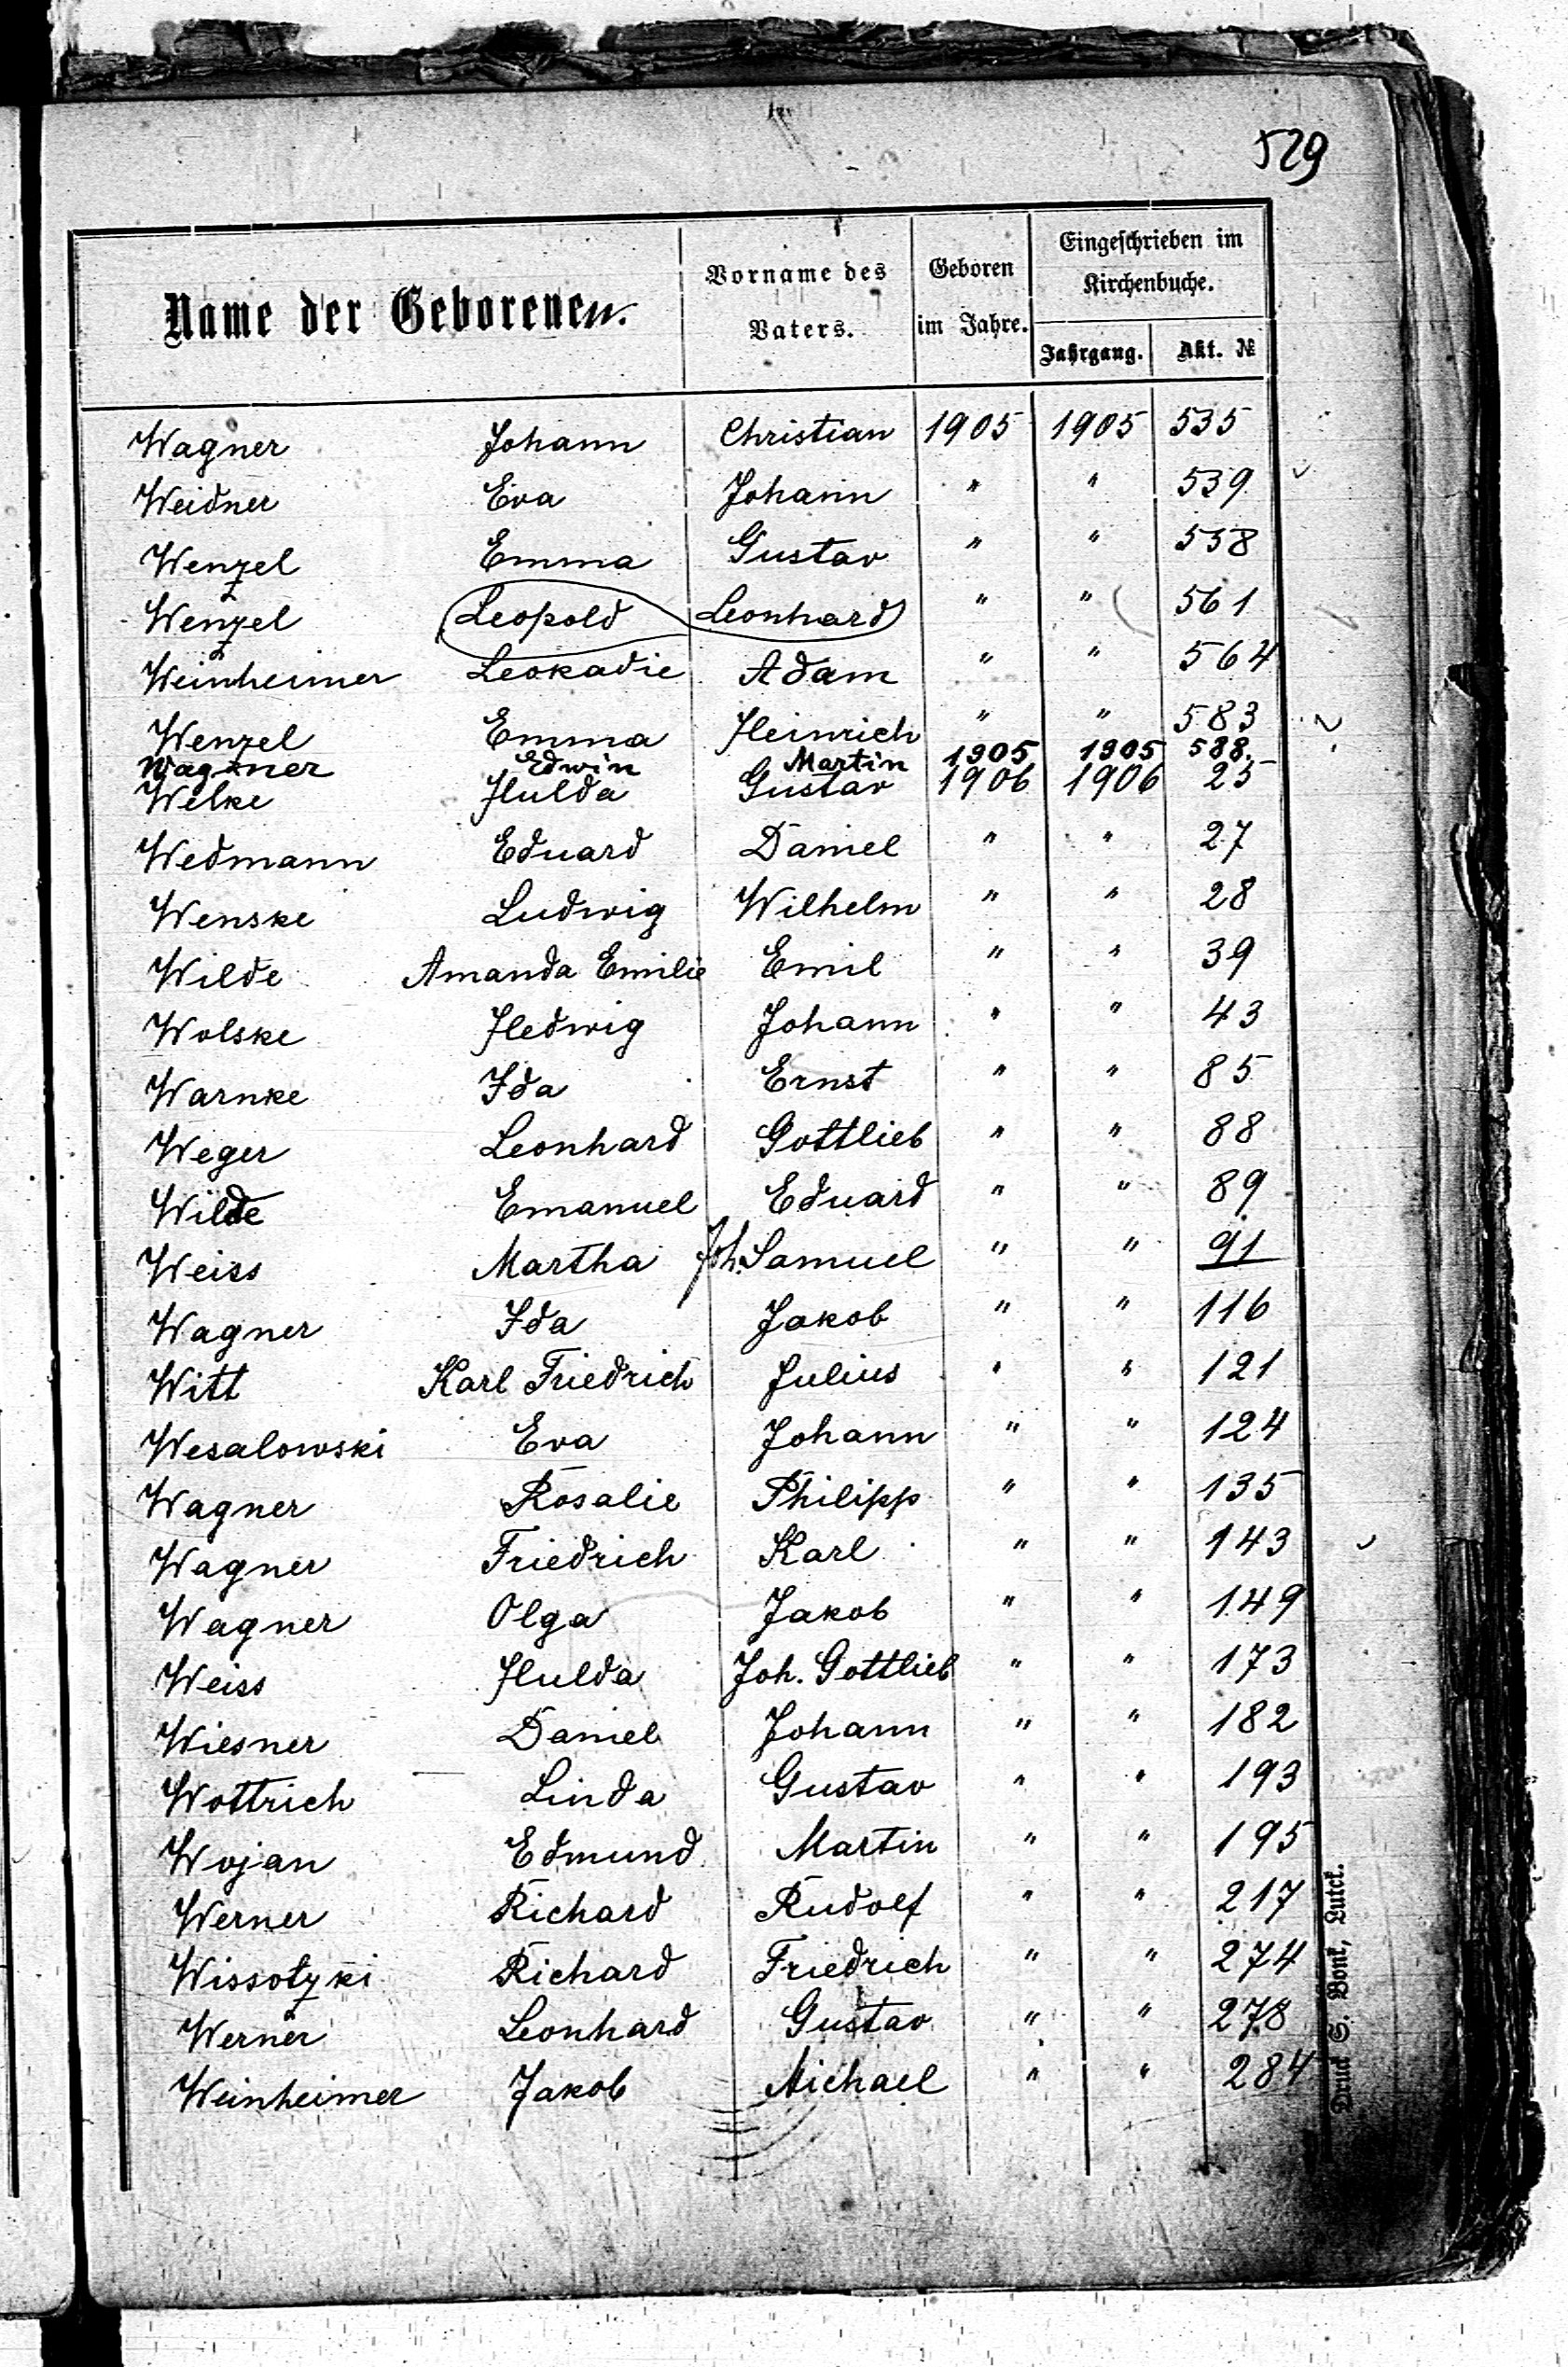 529
Name der Geborenen.
Vorname des Vaters.
Geboren im Jahre.
Eingeschrieben im Kirchenbuche.
Jahrgang.
Akt. №
Wagner Johann Christian 1905 1905 535
Weidner Eva Johann " " 539
Wenzel Emma Gustav " " 558
Wenzel Leopold Leonhard " " 561
Weinheimer Leokadie Adam " " 564
Wenzel Emma Heinrich " " 583
Wagner Edwin Martin 1905 1905 588
Welke Hulda Gustav 1906 1906 25
Wedmann Eduard Daniel " " 27
Wenske Ludwig Wilhelm " " 28
Wilde Amanda Emilie Emil " " 39
Wolske Hedwig Johann " " 43
Warnke Ida Ernst " " 85
Weger Leonhard Gottlieb " " 88
Wilde Emanuel Eduard " " 89
Weiss Martha Joh. Samuel " " 91
Wagner Ida Jakob " " 116
Witt Karl Friedrich Julius " " 121
Wesalowski Eva Johann " " 124
Wagner Rosalie Philipp " " 135
Wagner Friedrich Karl " " 143
Wagner Olga Jakob " " 149
Weiss Hulda Joh. Gottlieb " " 173
Wiesner Daniel Johann " " 182
Wottrich Linda Gustav " " 193
Wojan Edmund Martin " " 195
Werner Richard Rudolf " " 217
Wissotzki Richard Friedrich " " 274
Werner Leonhard Gustav " " 278
Weinheimer Jakob Michael " " 284
Druck S. Bonk, Lutck.